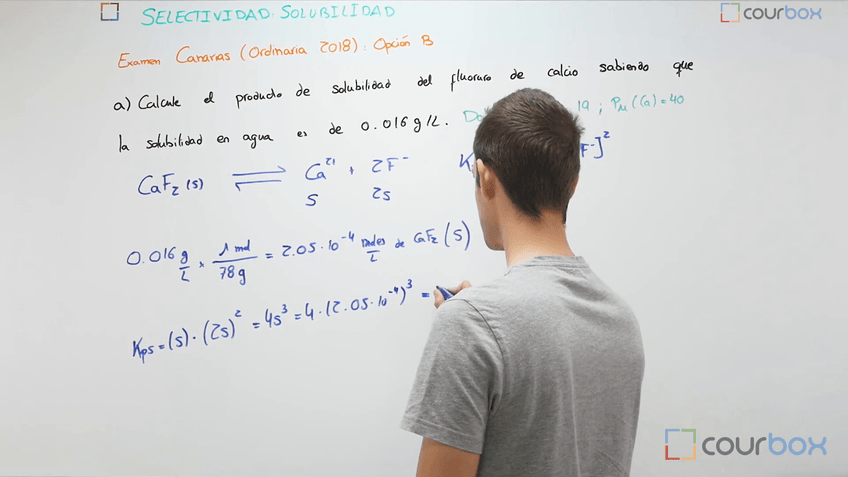 SELECTIVIDAD: SOLUBILIDAD
courbox
Examen Canarias (Ordinaria 2018): Opción B
a) Calcule el producto de solubilidad del fluoruro de calcio sabiendo que
la solubilidad en agua es de 0.016 g/L. 19 ; PM (Ca) = 40
CaF₂ (s) ⇌ Ca²⁺ + 2F⁻ F⁻]²
S 2s
0.016 g/L × 1 mol/78g = 2.05·10⁻⁴ moles/L de CaF₂ (S)
Kps = (s) · (2s)² = 4s³ = 4·(2.05·10⁻⁴)³ =
courbox